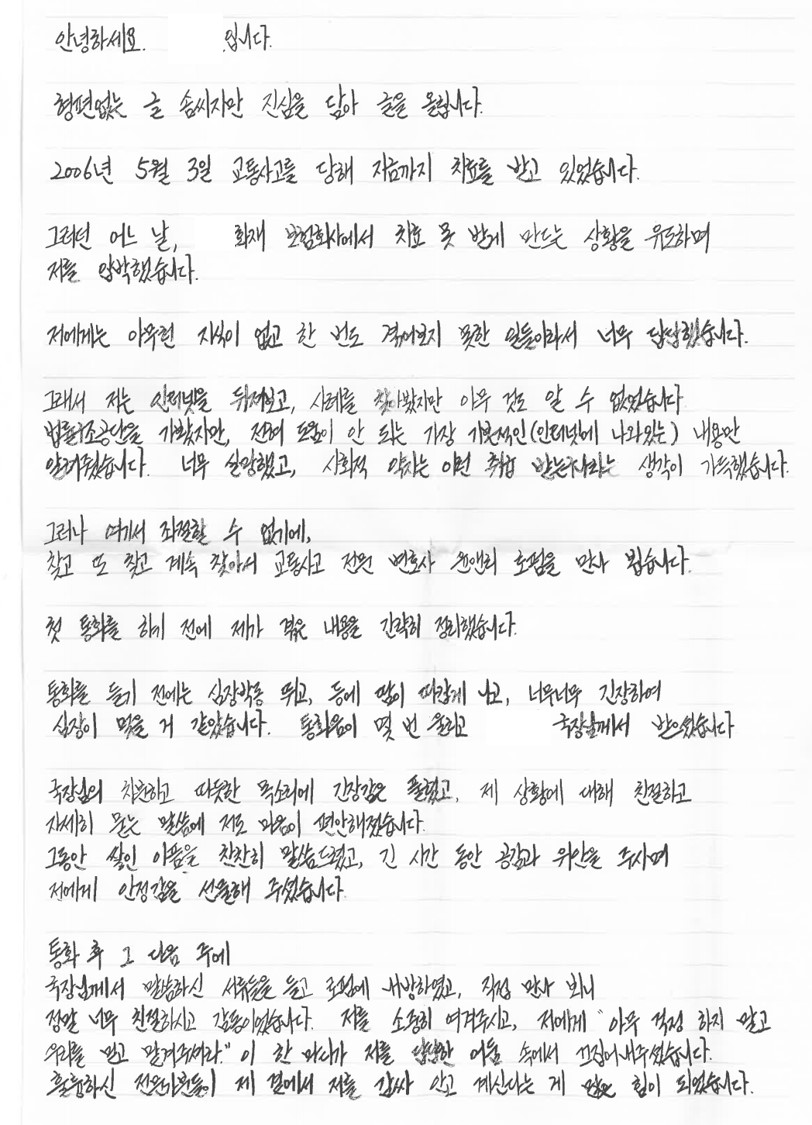 안녕하세요. 입니다.
형편없는 글 솜씨지만 진심을 담아 글을 올립니다.
2006년 5월 3일 교통사고를 당해 지금까지 치료를 받고 있었습니다.
그러던 어느 날, 화재 보험회사에서 치료 못 받게 만드는 상황을 유도하며
저를 압박했습니다.
저에게는 아무런 지식이 없고 한 번도 겪어보지 못한 일들이라서 너무 답답했습니다.
그래서 저는 인터넷을 뒤져보고, 사례를 찾아봤지만 아무 것도 알 수 없었습니다
법률구조공단을 가봤지만, 전혀 도움이 안 되는 가장 기본적인(인터넷에 나와있는) 내용만
알려줬습니다. 너무 실망했고, 사회적 약자는 이런 취급 받는구나라는 생각이 가득했습니다.
그러나 여기서 좌절할 수 없기에,
찾고 또 찾고 계속 찾아서 교통사고 전문 변호사 윤앤리 로펌을 만나 뵀습니다.
첫 통화를 하기 전에 제가 겪은 내용을 간략히 정리했습니다.
통화를 듣기 전에는 심장박동 뛰고, 등에 땀이 따갑게 나고, 너무너무 긴장하여
심장이 멎을 거 같았습니다. 통화음이 몇 번 울리고 국장님께서 받으셨습니다
국장님의 차분하고 따뜻한 목소리에 긴장감은 풀렸고, 제 상황에 대해 친절하고
자세히 묻는 말씀에 저도 마음이 편안해졌습니다.
그동안 쌓인 아픔을 찬찬히 말씀드렸고, 긴 시간 동안 공감과 위안을 주시며
저에게 안정감을 선물해 주셨습니다.
통화 후 그 다음 주에
국장님께서 말씀하신 서류들을 들고 로펌에 내방하였고, 직접 만나 뵈니
정말 너무 친절하시고 감동이었습니다. 저를 소중히 여겨주시고, 저에게 "아무 걱정 하지 말고
우리를 믿고 맡겨주셔라." 이 한 마디가 저를 깜깜한 어둠 속에서 끄집어내주셨습니다.
훌륭하신 전문가분들이 제 곁에서 저를 감싸 안고 계신다는 게 많은 힘이 되었습니다.